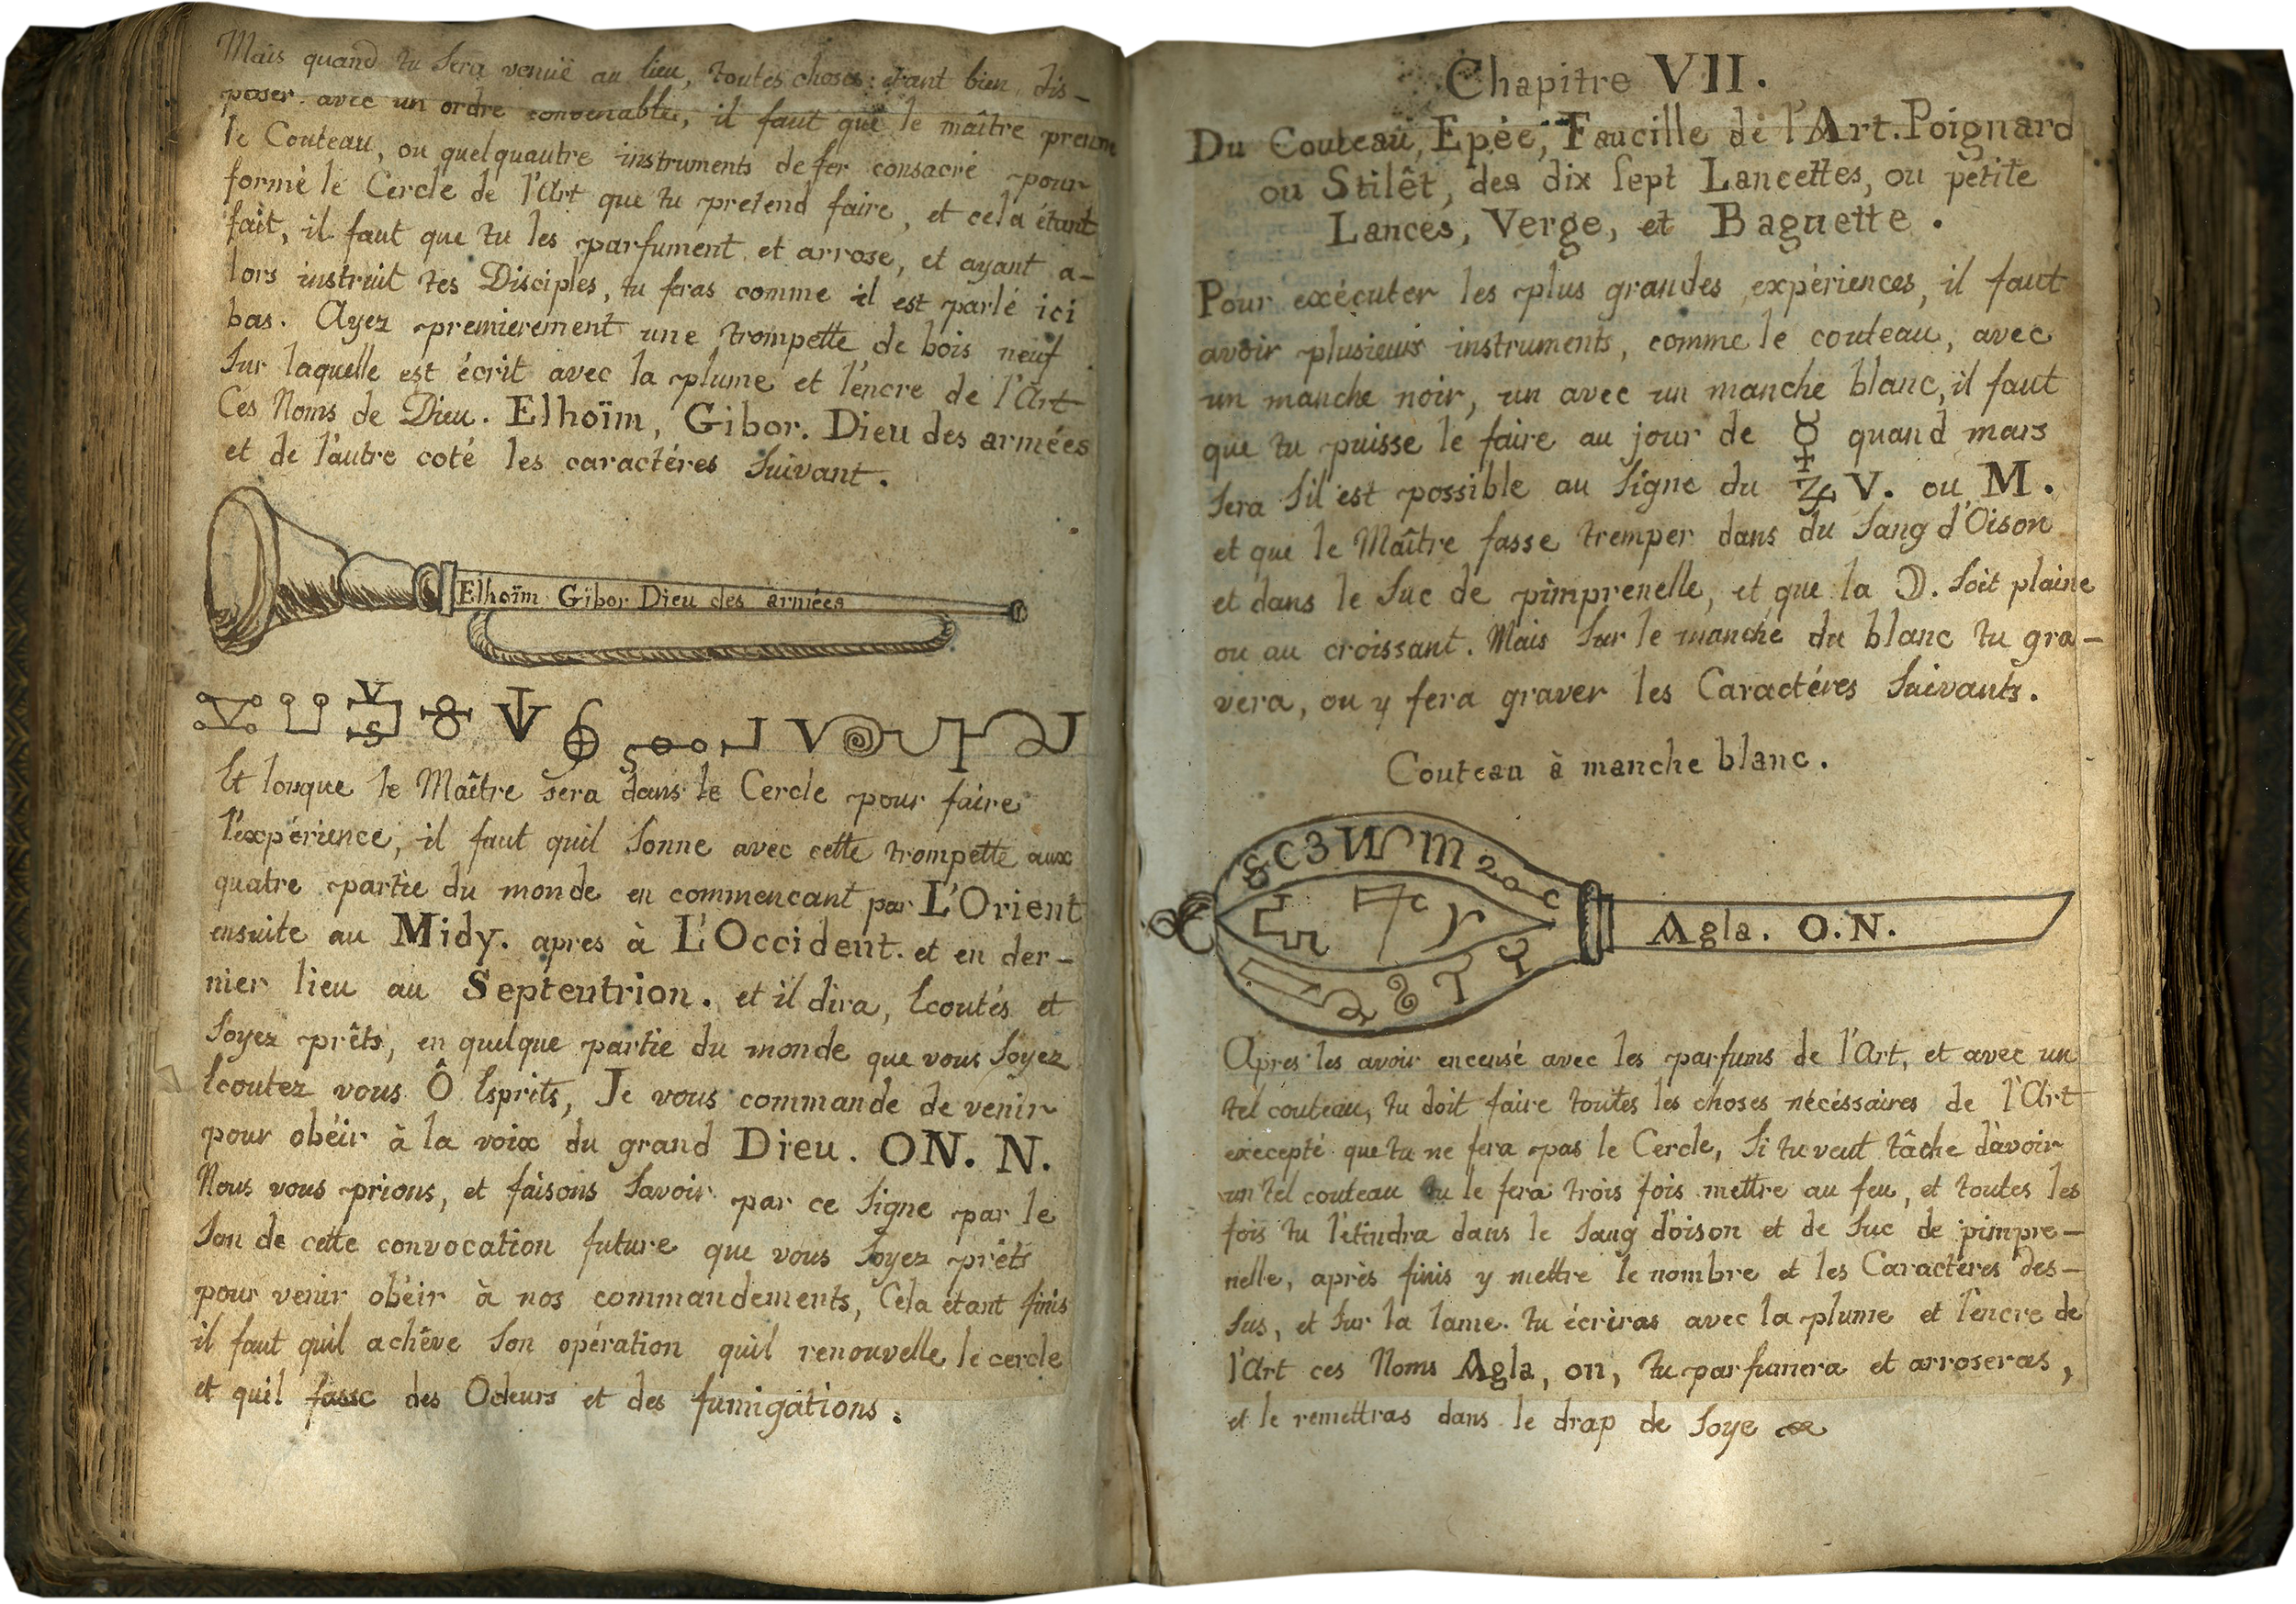 Mais quand tu sera venuë au lieu, toutes choses étant bien dis-
poser avec un ordre convenable, il faut que le maître prenne
le Couteau, ou quelquautre instruments de fer consacré pour
formé le Cercle de l'Art que tu pretend faire, et cela étant
fait, il faut que tu les parfument et arrose, et ayant a-
lors instruit tes Disciples, tu feras comme il est parlé ici
bas. Ayez premierement une trompette de bois neuf
sur laquelle est écrit avec la plume et l'encre de l'Art
Ces Noms de Dieu. Elhoïm, Gibor. Dieu des armées
et de l'autre coté les caractéres suivant.
Elhoïm Gibor Dieu des armées
Et lorque le Maître sera dans le Cercle pour faire
l'expérience, il faut quil sonne avec cette trompette aux
quatre partie du monde en commencant par L'Orient
ensuite au Midy. apres à L'Occident. et en der-
nier lieu au Septentrion. et il dira, Ecoutés et
soyez prêts, en quelque partie du monde que vous soyez
Ecoutez vous Ô Esprits, Je vous commande de venir
pour obéir à la voix du grand Dieu. ON. N.
Nous vous prions, et faisons savoir par ce signe par le
son de cette convocation future que vous soyez prêts
pour venir obéir à nos commandements, Cela étant finis
il faut quil achêve son opération quil renouvelle le cercle
et quil fasse des Odeurs et des fumigations.
Chapitre VII.
Du Couteau, Epée, Faucille de l'Art. Poignard
ou Stilêt, des dix sept Lancettes, ou petite
Lances, Verge, et Baguette.
Pour exécuter les plus grandes expériences, il faut
avoir plusieurs instruments, comme le couteau, avec
un manche noir, un avec un manche blanc, il faut
que tu puisse le faire au jour de ☿ quand mars
sera sil est possible au signe du ♑ V. ou M.
et que le Maître fasse tremper dans du sang d'Oison
et dans le suc de pimprenelle, et que la ☽. soit plaine
ou au croissant. Mais sur le manche du blanc tu gra-
vera, ou y fera graver les Caractéres suivants.
Couteau à manche blanc.
Agla. O.N.
Apres les avoir encensé avec les parfums de l'Art, et avec un
tel couteau, tu doit faire toutes les choses nécéssaires de l'Art
execepté que tu ne fera pas le Cercle, si tu veut tâche d'avoir
un tel couteau tu le fera trois fois mettre au feu, et toutes les
fois tu l'étindra dans le sang d'oison et de suc de pimpre-
nelle, après finis y mettre le nombre et les Caractéres des-
sus, et sur la lame. tu écriras avec la plume et l'encre de
l'Art ces Noms Agla, on, tu parfumera et arroseras,
et le remettras dans le drap de soye